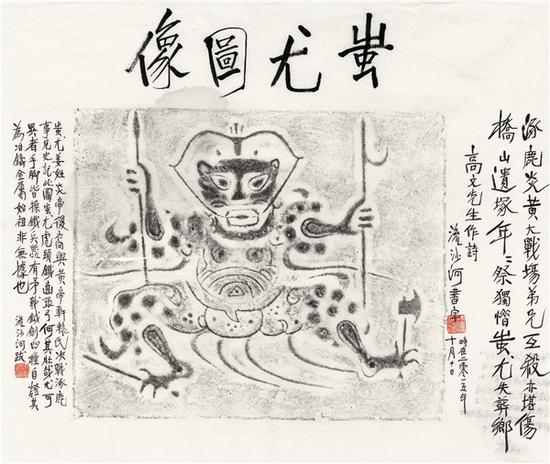 蚩尤圖像
涿鹿炎黄大戰場弟兄互殺亦堪傷
橋山遺塚年〻祭獨惜蚩尤失葬鄉
高文先生作詩
流沙河書字
時在二零一五年
十月十日
蚩尤姜姓炎帝後裔與黃帝軒轅氏决戰涿鹿
事見史記此圖蚩尤虎頭鐵盔張弓何其壯哉尤可
異者手脚皆操鐵兵器有矛戟鉞劍四種自證其
為冶鑄金屬始祖非無據也
流沙河跋